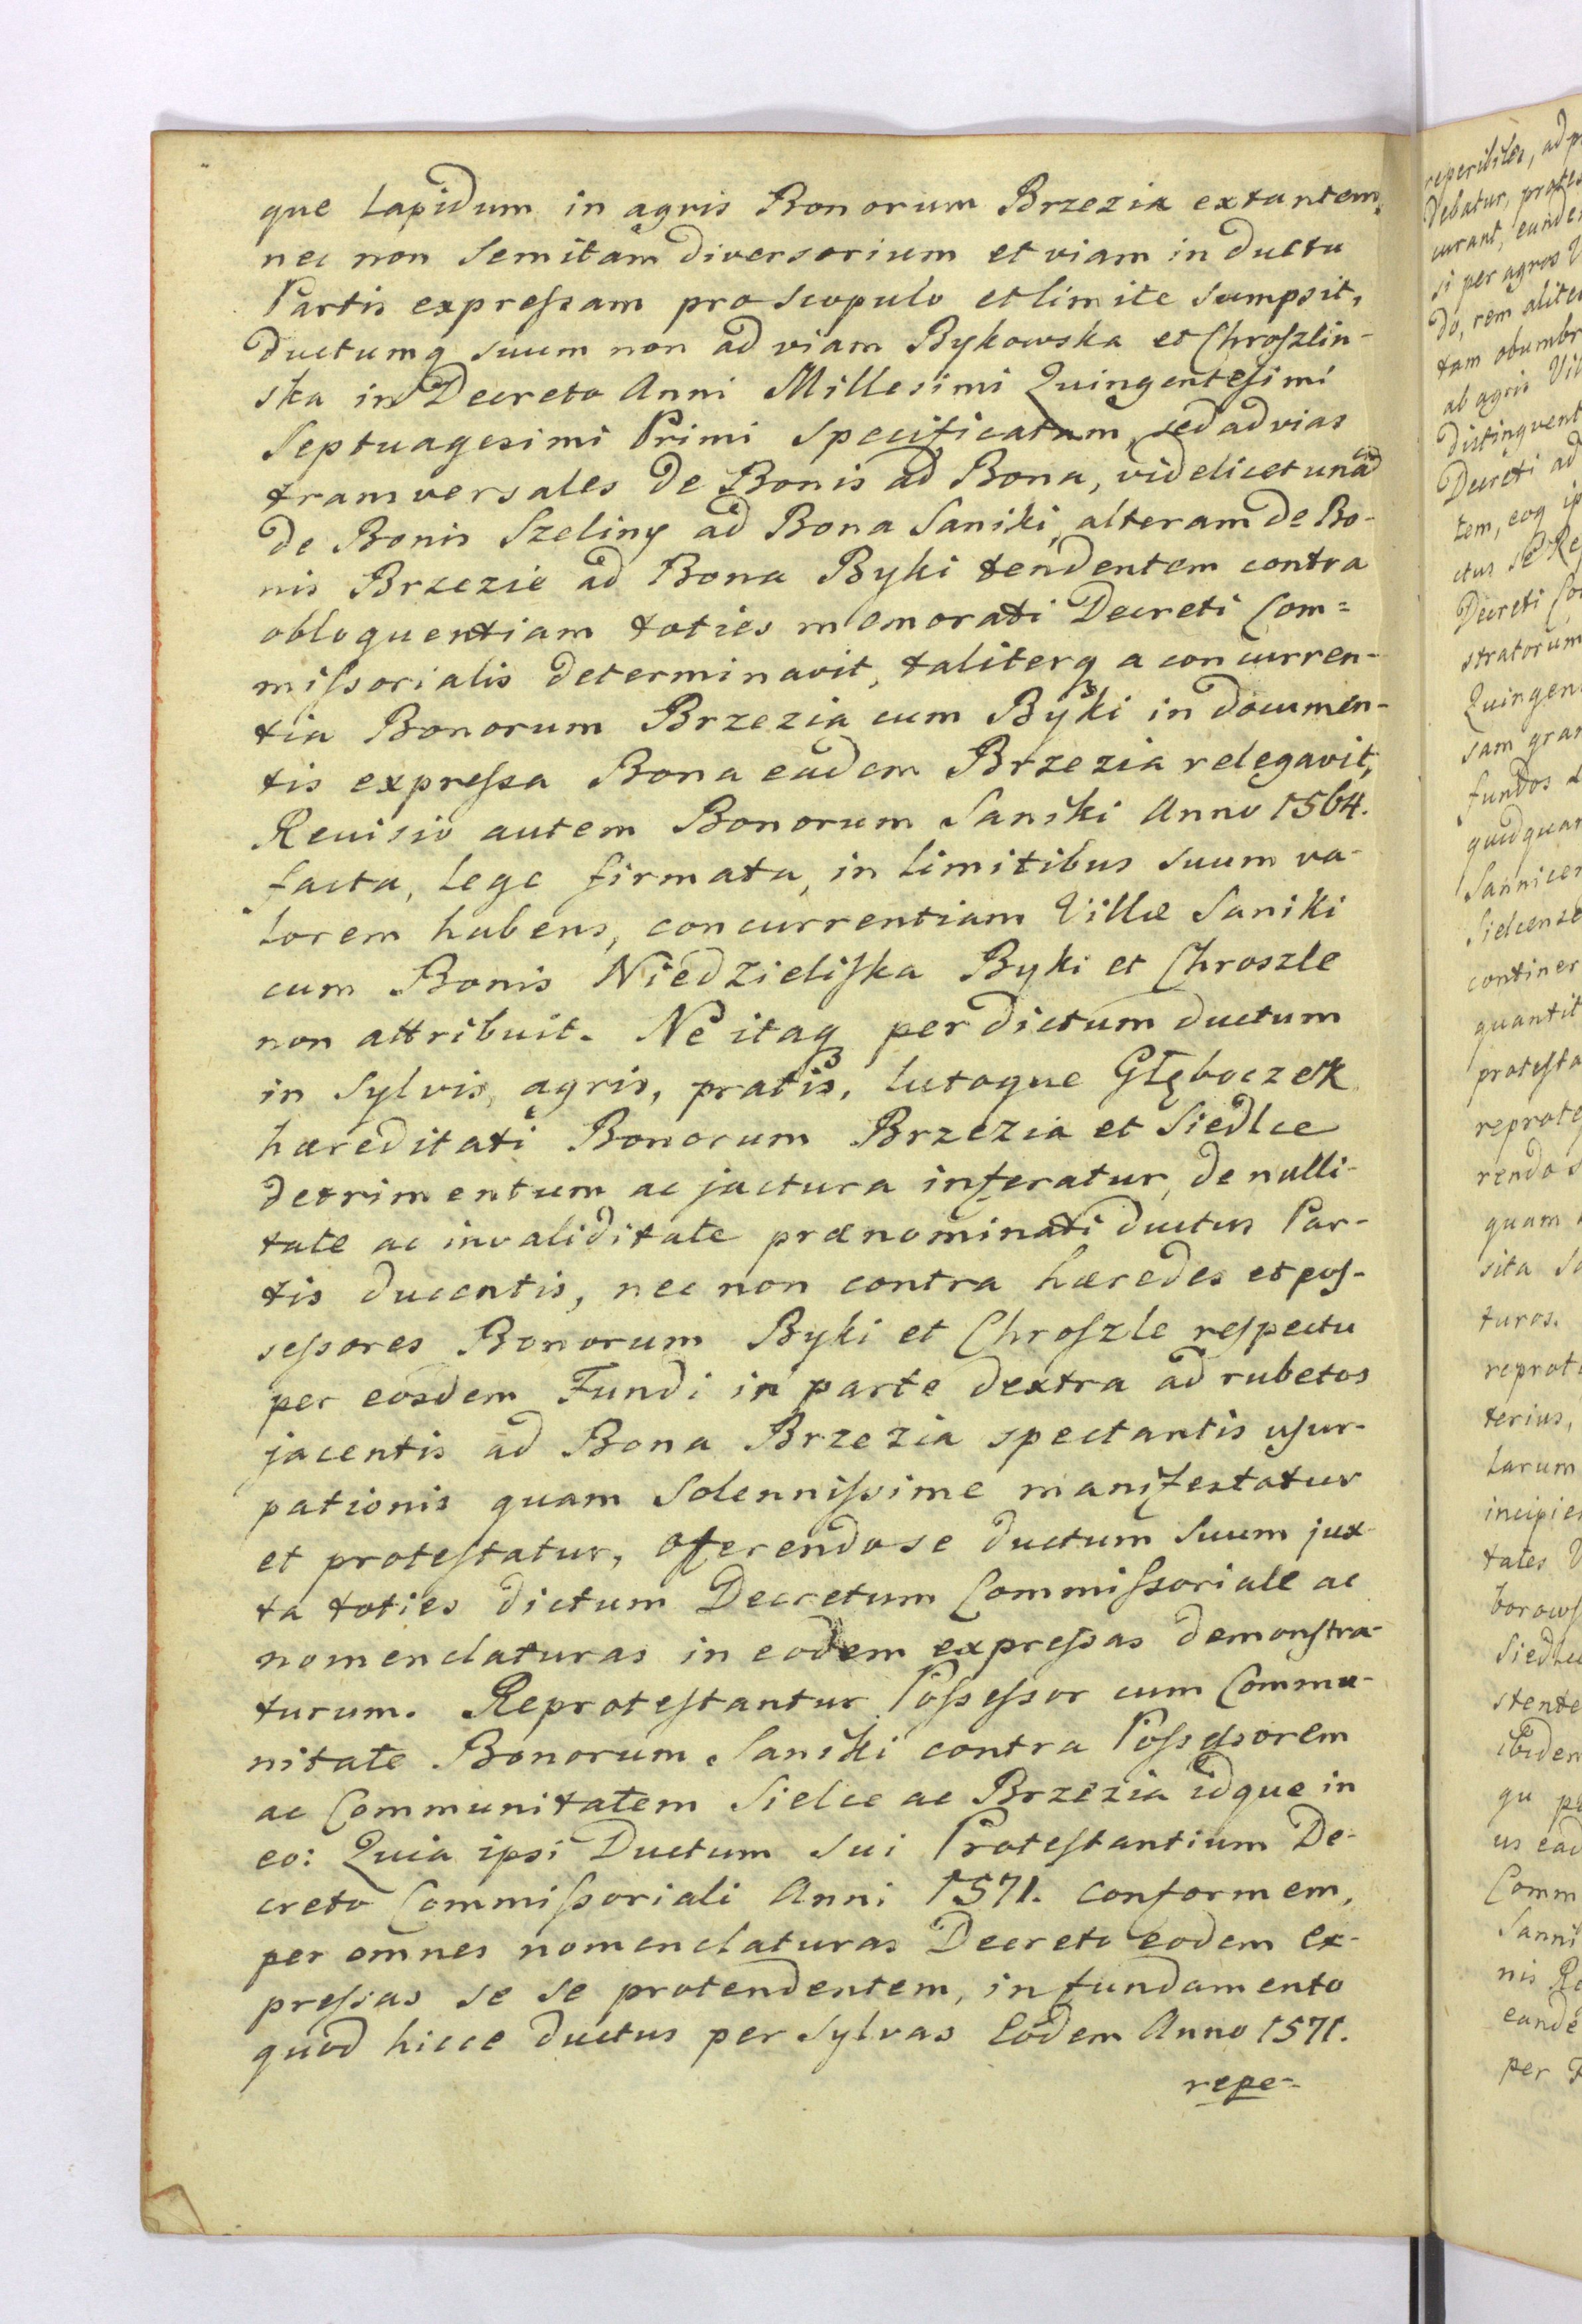 que Lapidum in agris Bonorum Brzezia extantem,
nec non Semitam diversorium et viam in ductu
Partis expreſsam pro Scopulo et limite Sumpsit,
ductumq suum non ad viam Bykowska et Chroſzlin-
ska in Decreto Anni Millesimi Quingenteſimi
Septuagesimi Primi Specificatum, sed ad vias
transversales de Bonis ad Bona, videlicet unā
de Bonis Szeliny ad Bona Saniki, alteram de Bo-
nis Brzezie ad Bona Byki tendentem contra
obloquentiam toties memorati Decreti Com=
miſsorialis determinavit, taliterq a concurren-
tia Bonorum Brzezia cum Byki in documen-
tis expreſsa Bona eadem Brzezia relegavit,
Revisio autem Bonorum Saniki Anno 1564.
facta, Lege firmata, in Limitibus suum va-
lorem habens, concurrentiam Villæ Saniki
cum Bonis Niedzieliſka Byki et Chroszle
non attribuit. Ne itaq per dictum ductum
in Sylvis, agris, pratis, lutoque Głęboczek
hæreditati Bonorum Brzezia et Siedlce
detrimentum ac jactura inferatur, de nulli-
tate ac invaliditate prænominati ductus Par-
tis ducentis, nec non contra hæredes et poſ-
seſsores Bonorum Byki et Chroſzle reſpectu
per eosdem Fundi in parte dextra ad rubetos
jacentis ad Bona Brzezia spectantis uſur-
pationis quam Solenniſsime manifestatur
et proteſtatur, oferendo se ductum Suum jux-
ta toties dictum Decretum Commiſsoriale ac
nomenclaturas in eodem expreſsas demonſtra-
turum. Reproteſtantur Poſseſsor cum Commu-
nitate Bonorum Saniki contra Poſseſsorem
ac Communitatem Sielce ac Brzezia idque in
eo: Quia ipsi Ductum Sui Proteſtantium De-
creto Commiſsoriali Anni 1571. conformem,
per omnes nomenclaturas Decreto eodem ex-
preſsas se se protendentem, in fundamento
quod hicce ductus per Sylvas Eodem Anno 1571.
repe-